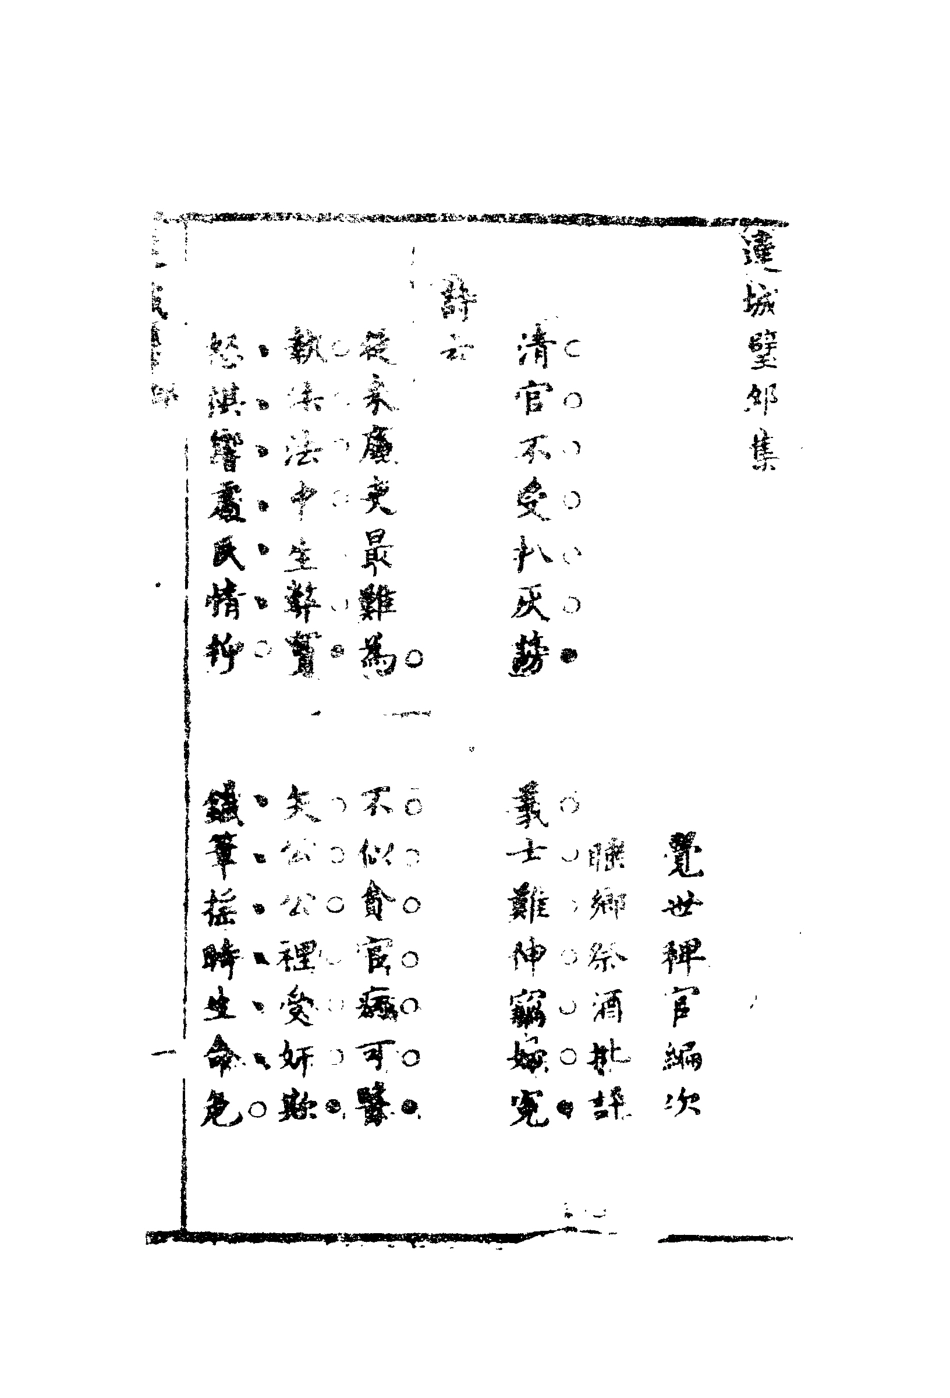 連城璧卯集
覺世稗官編次
睡鄉祭酒批評
清官不受扒灰謗　義士難伸竊婦寃
詩云
從來廉吏最難為　不似貪官病可醫
執法法中生弊竇　矢公公裡受奸欺
怒棋響處民情抑　鐵筆搖時生命危
一